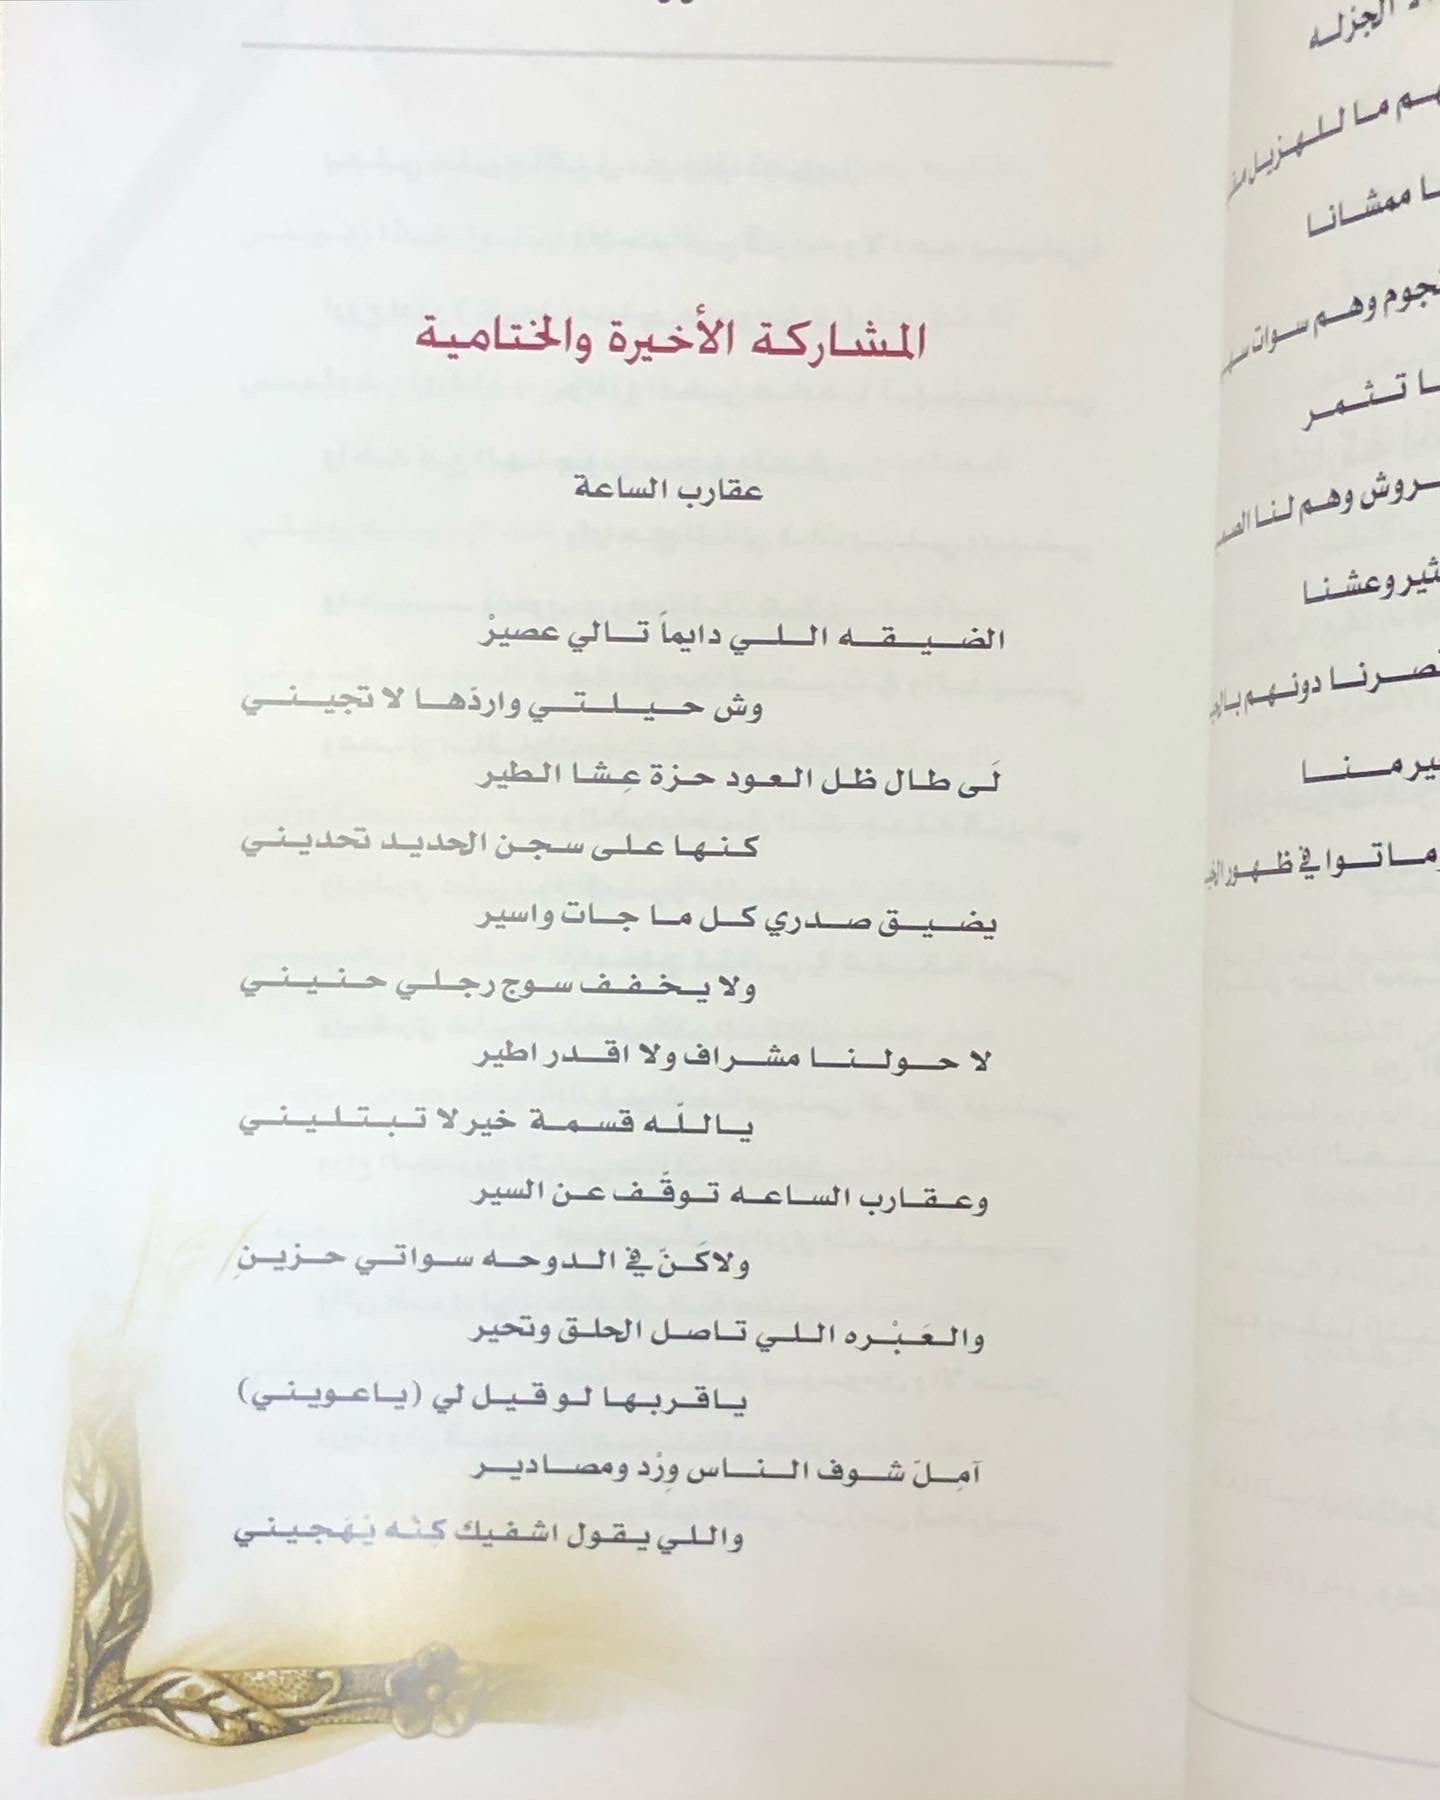 المشاركة الأخيرة والختامية
عقارب الساعة
الضيقه اللي دايماً تالي عصيرْ
وش حيلتي واردّها لا تجيني
لَى طال ظل العود حزة عِشا الطير
كنها على سجن الحديد تحديني
يضيق صدري كل ما جات واسير
ولا يخفف سوج رجلي حنيني
لا حولنا مشراف ولا اقدر اطير
يالله قسمة خير لا تبتليني
وعقارب الساعه توقّف عن السير
ولاكَنّ في الدوحه سواتي حزينِ
والعَبْره اللي تاصل الحلق وتحير
ياقربها لو قيل لي (ياعويني)
آمِلّ شوف الناس وِرْد ومصادير
واللي يقول اشفيك كِنْه يْهَجيني
الجزله
ما للهزيل
ممشانا
وهم سوات
تثمر
وهم لنا
وعشنا
دونهم
منا
في ظهور